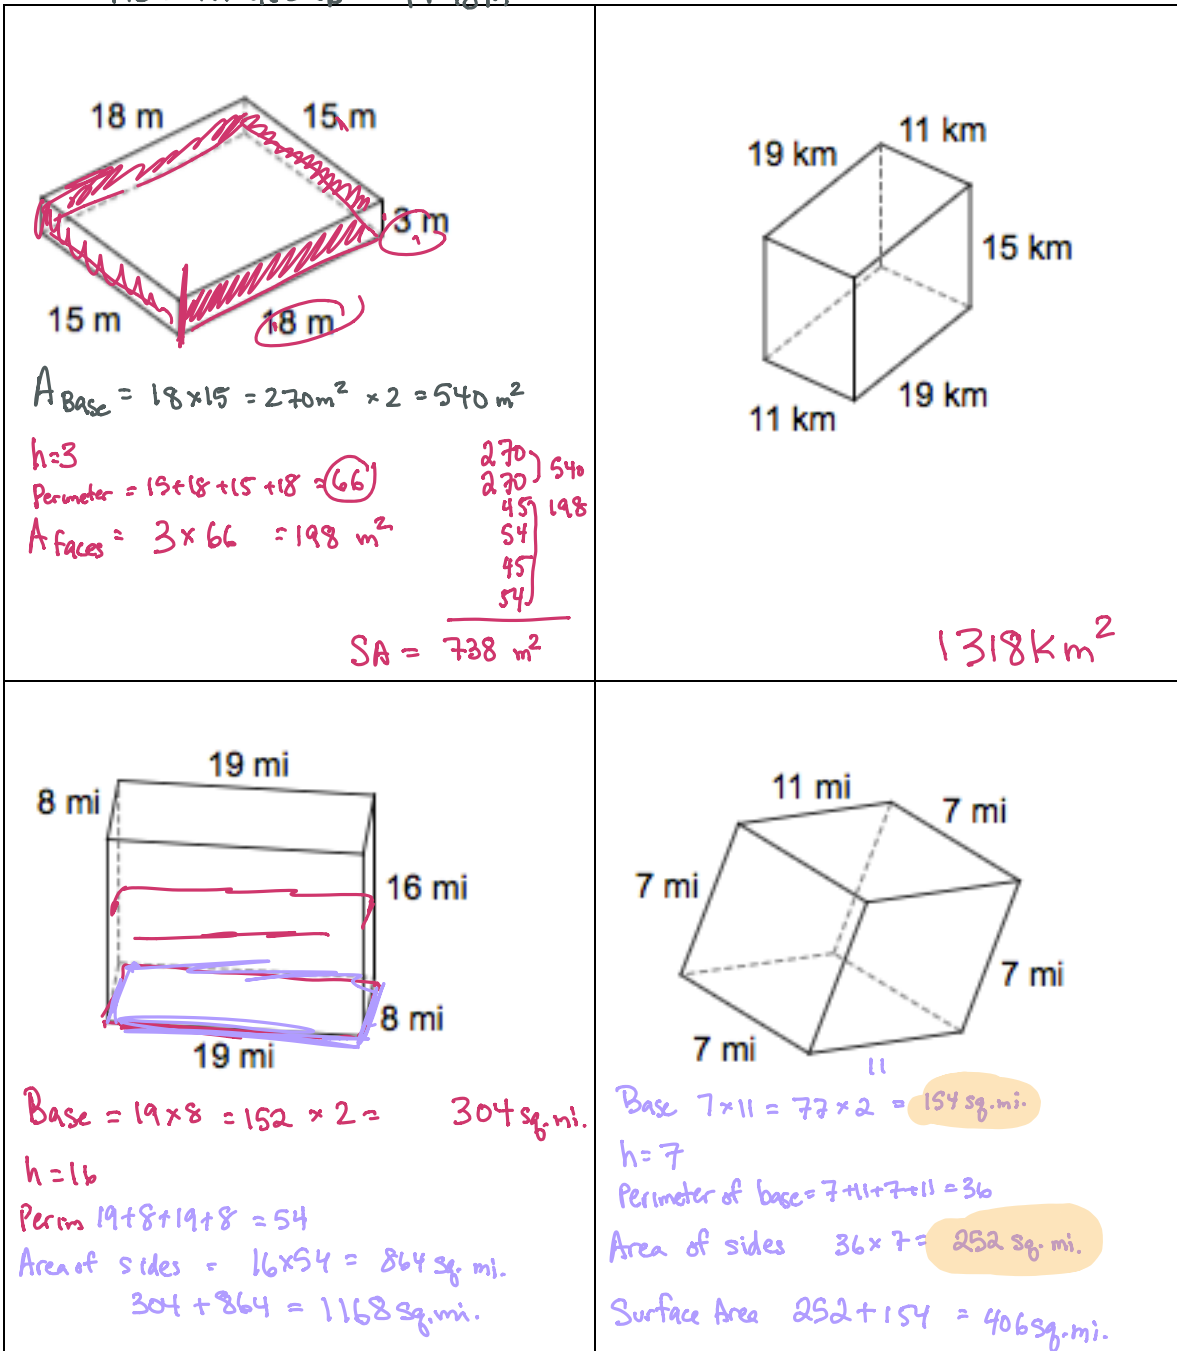 18 m
15 m
3 m
15 m
18 m
A Base = 18×15 = 270m² × 2 = 540 m²
h=3
Perimeter = 15+18+15+18 = 66
A faces = 3×66 = 198 m²
270
270
540
45
198
54
45
54
SA = 738 m²
11 km
19 km
15 km
19 km
11 km
1318Km²
19 mi
8 mi
16 mi
8 mi
19 mi
Base = 19×8 = 152 × 2 = 304 sq.mi.
h=16
Perim 19+8+19+8 = 54
Area of sides = 16×54 = 864 sq. mi.
304 + 864 = 1168 sq.mi.
11 mi
7 mi
7 mi
7 mi
7 mi
11
Base 7×11 = 77×2 = 154 sq.mi.
h=7
Perimeter of base = 7+11+7+11 = 36
Area of sides 36×7= 252 sq. mi.
Surface Area 252+154 = 406 sq.mi.